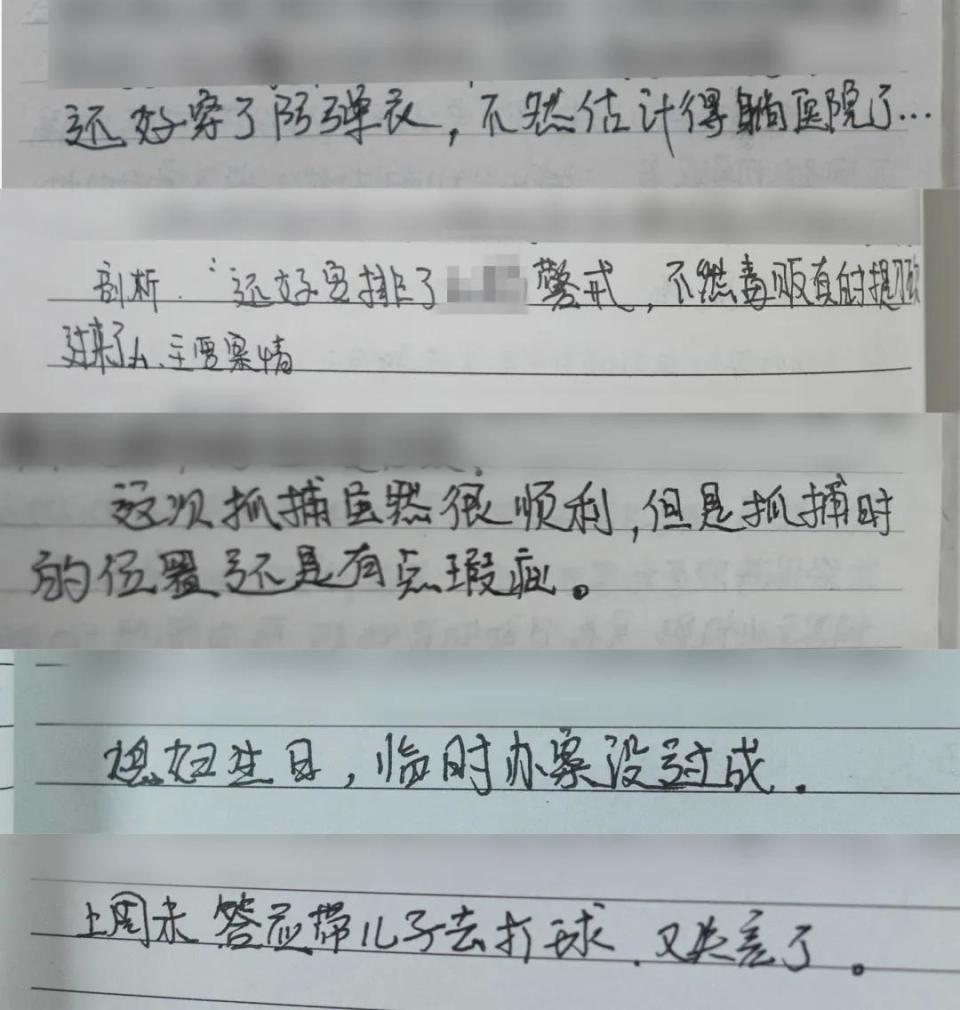 还好穿了防弹衣，不然估计得躺医院了…
剖析：还好安排了 警戒，不然毒贩真的提
过来了。主要案情
这次抓捕虽然很顺利，但是抓捕时
的位置还是有点瑕疵。
媳妇生日，临时办案没过成．
上周末答应带儿子去打球．又失言了。